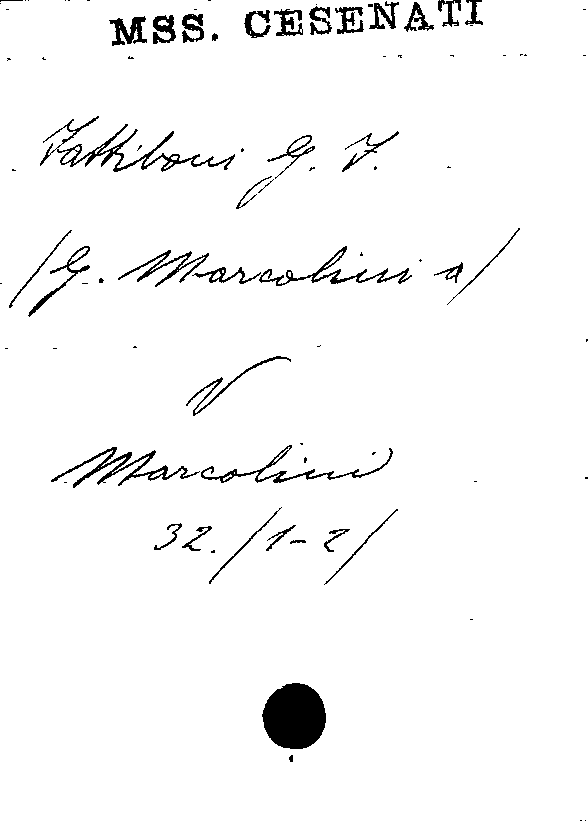 MSS. CESENATI
Fattiboni G. F.
/G. Marcolini a/
V
Marcolini
32. /1-2/